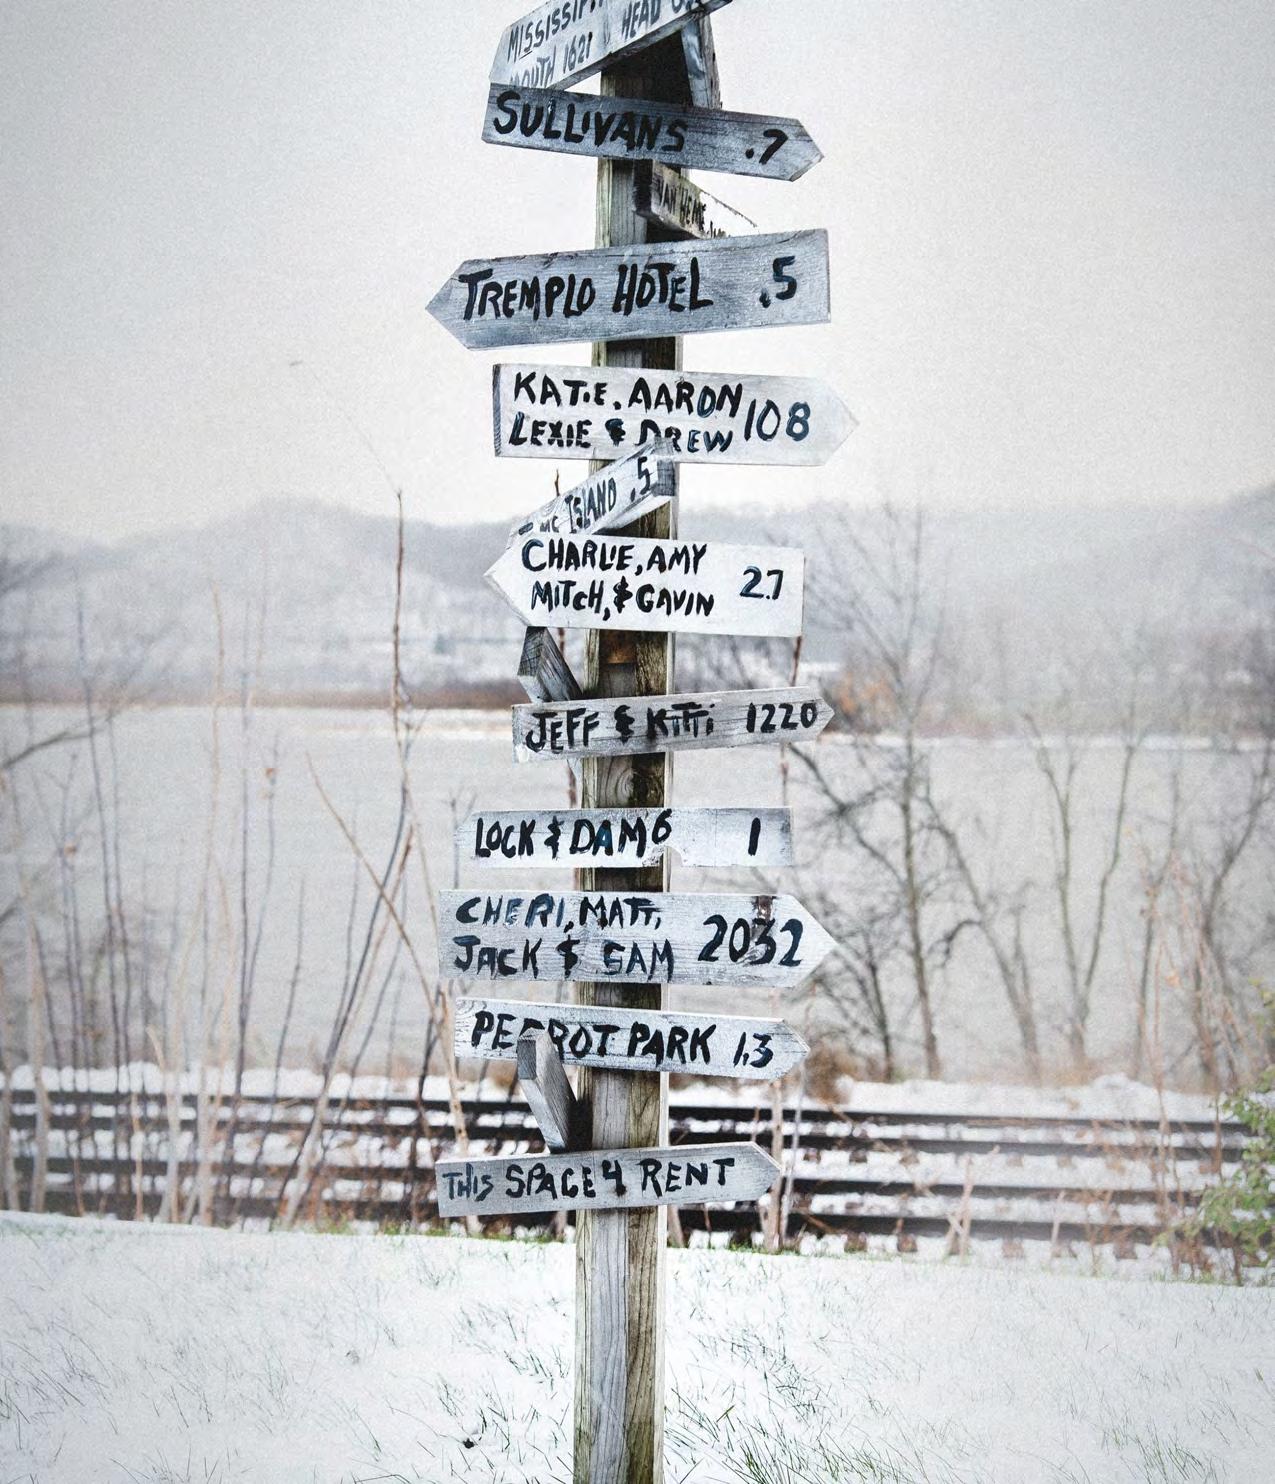 MISSISSIPPI HEAD
MOUTH 1621
SULLIVANS .7
VAN
TREMPLO HOTEL .5
KATIE, AARON
LEXIE & DREW 108
ISLAND .5
CHARLIE, AMY
MITCH, & GAVIN 2.7
JEFF & KITTI 1220
LOCK & DAM 6 1
CHERI, MATT,
JACK & SAM 2032
PERROT PARK 1.3
THIS SPACE 4 RENT